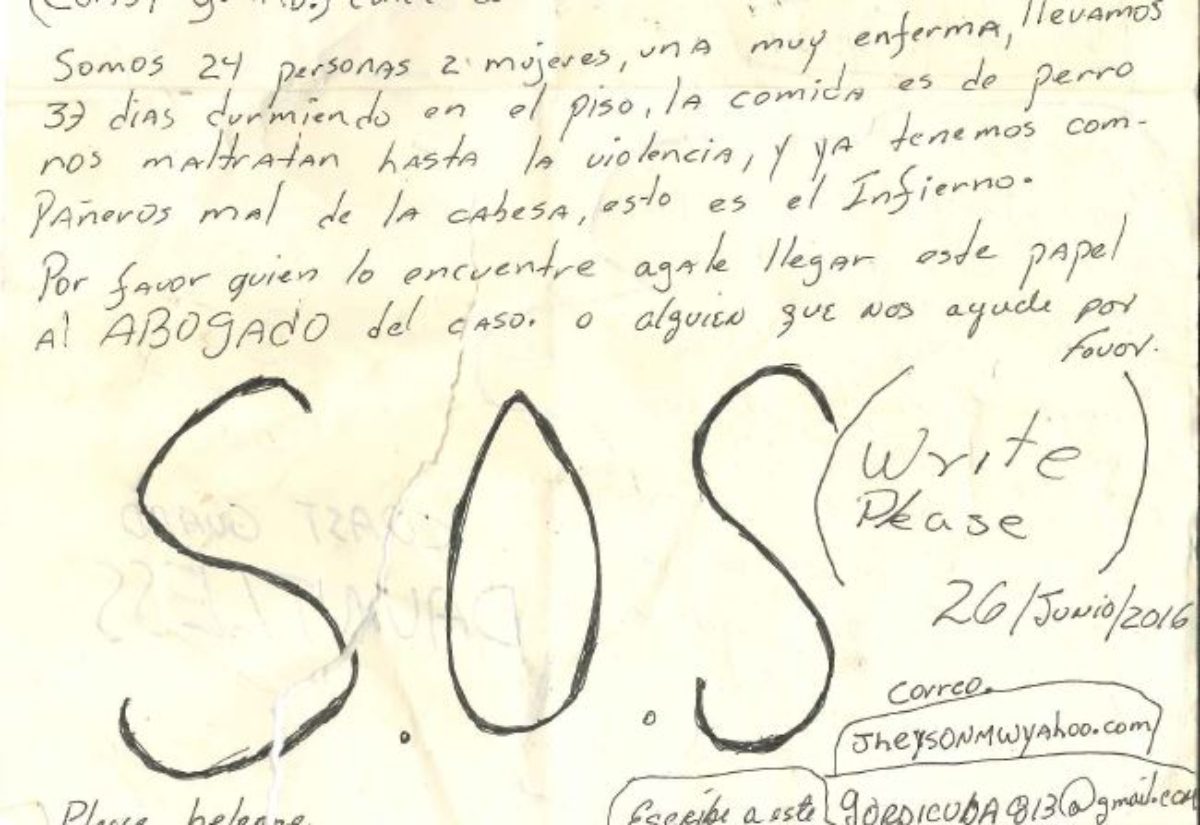 Somos 24 personas 2 mujeres, una muy enferma, llevamos
37 dias durmiendo en el piso, la comida es de perro
nos maltratan hasta la violencia, y ya tenemos com-
pañeros mal de la cabesa, esto es el Infierno.
Por favor quien lo encuentre agale llegar este papel
al ABOGADO del caso. o alguien que nos ayude por
favor.
S.O.S
(Write
Please)
26/Junio/2016
correo.
JheysonMwyahoo.com
Escribe a este gordicuba813@gmail.com
Please
COAST GUARD
DAUNTLESS